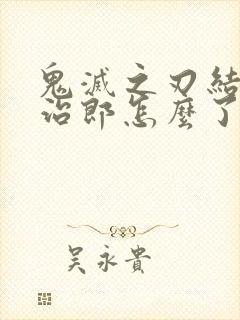 鬼滅之刃結
治郎怎麼了
吳永貴